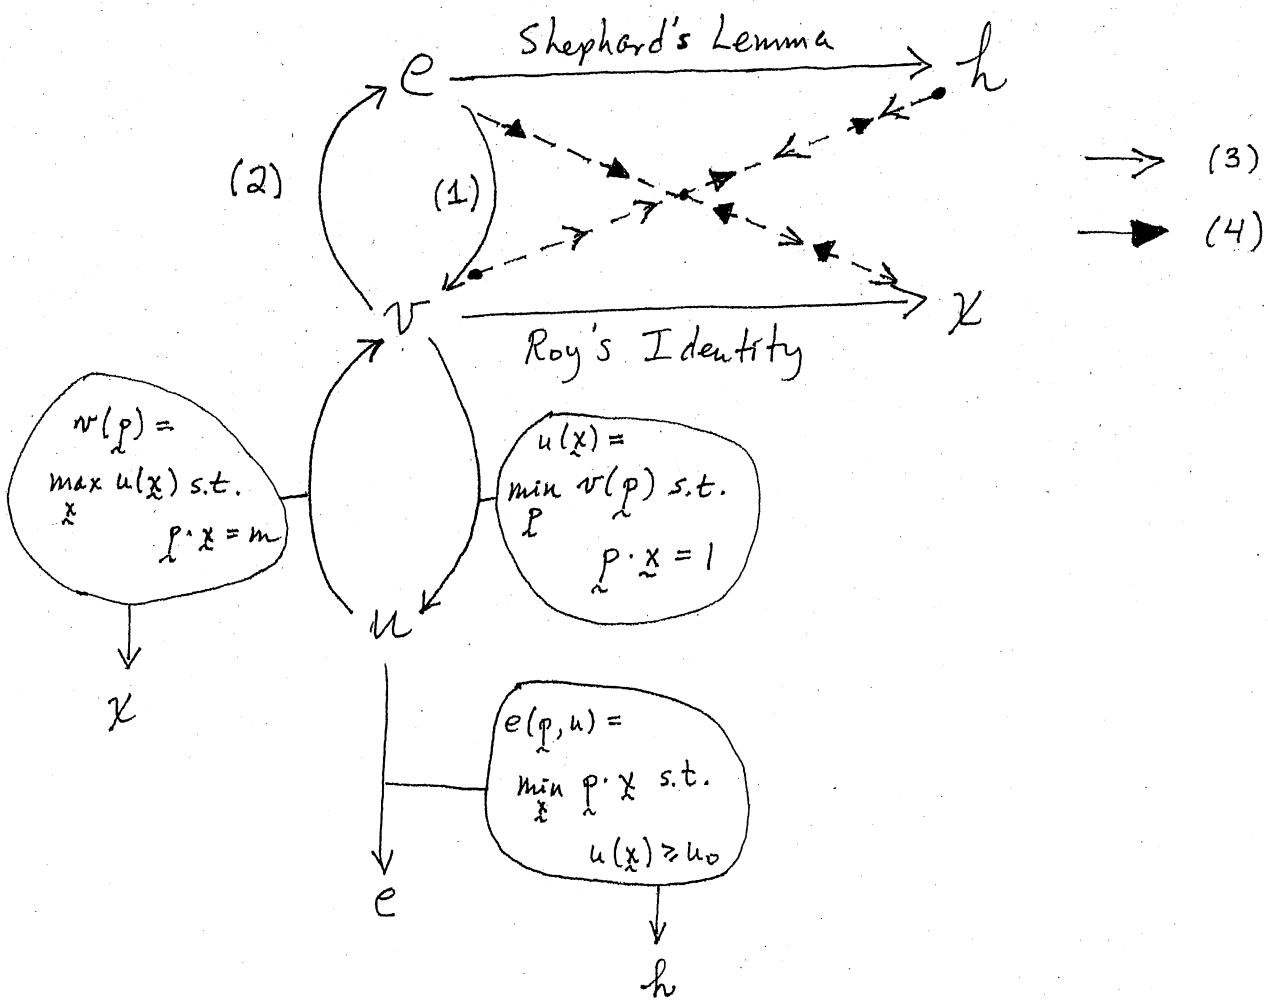 Shephard's Lemma
e
h
(2)
(1)
(3)
(4)
v
x
Roy's Identity
v(p) =
max u(x) s.t.
x
p · x = m
u(x) =
min v(p) s.t.
p
p · x = 1
u
x
e(p, u) =
min p · x s.t.
x
u(x) ≥ u₀
e
h